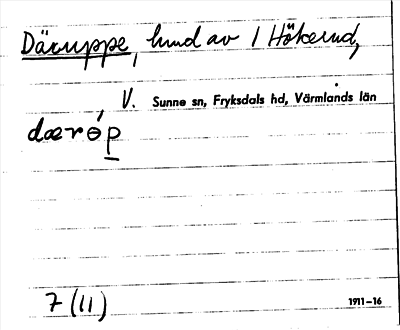 Däruppe, hmd av 1 Hökerud,
V. Sunne sn, Fryksdals hd, Värmlands län
dærɵ́p
7 (11)
1911–16